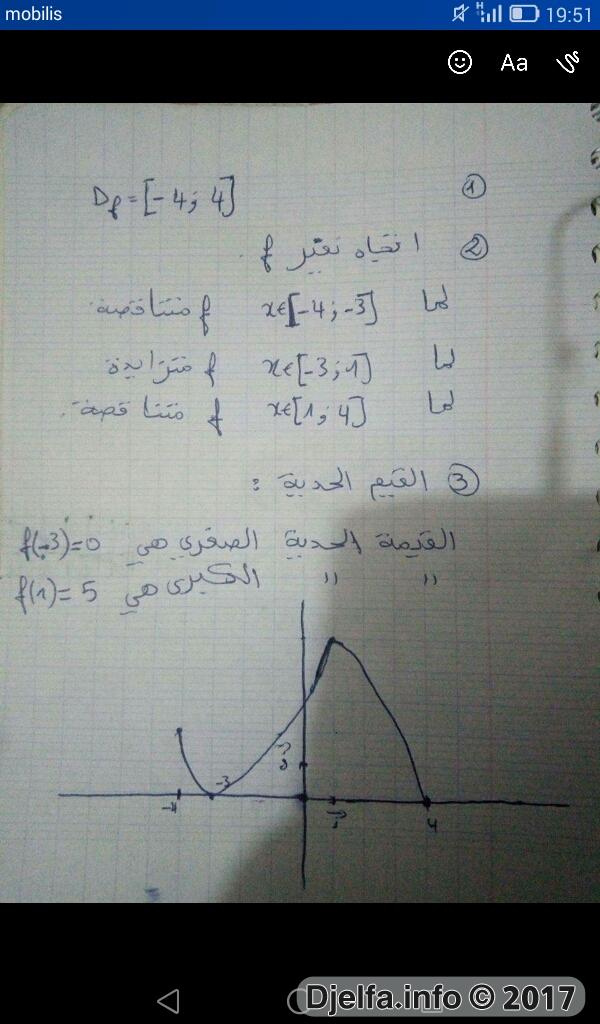 mobilis 19:51
Aa
① Df = [-4; 4]
② اتجاه تغير f.
لما x∈[-4; -3] f متناقصة.
لما x∈[-3; 1] f متزايدة
لما x∈[1; 4] f متناقصة.
③ القيم الحدية :
القيمة الحدية الصغرى هي f(-3)=0
" " الكبرى هي f(1)= 5
-3
-4
4
Djelfa.info © 2017